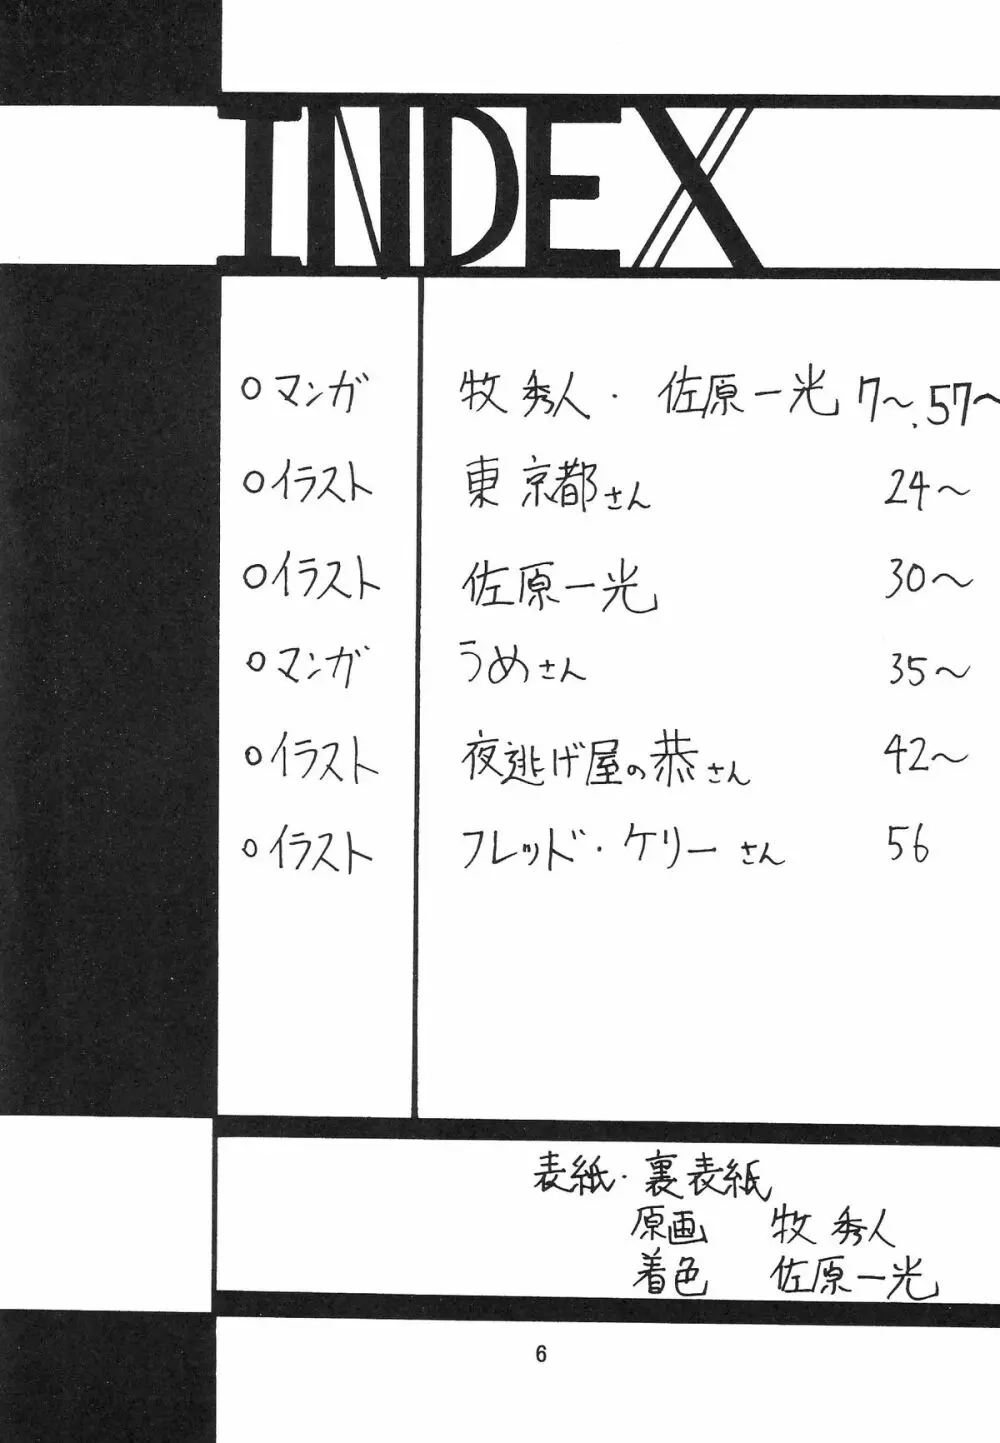 INDEX
○マンガ 牧秀人・佐原一光 7〜.57〜
○イラスト 東京都さん 24〜
○イラスト 佐原一光 30〜
○マンガ うめさん 35〜
○イラスト 夜逃げ屋の恭さん 42〜
○イラスト フレッド・ケリーさん 56
表紙・裏表紙
原画 牧秀人
着色 佐原一光
6